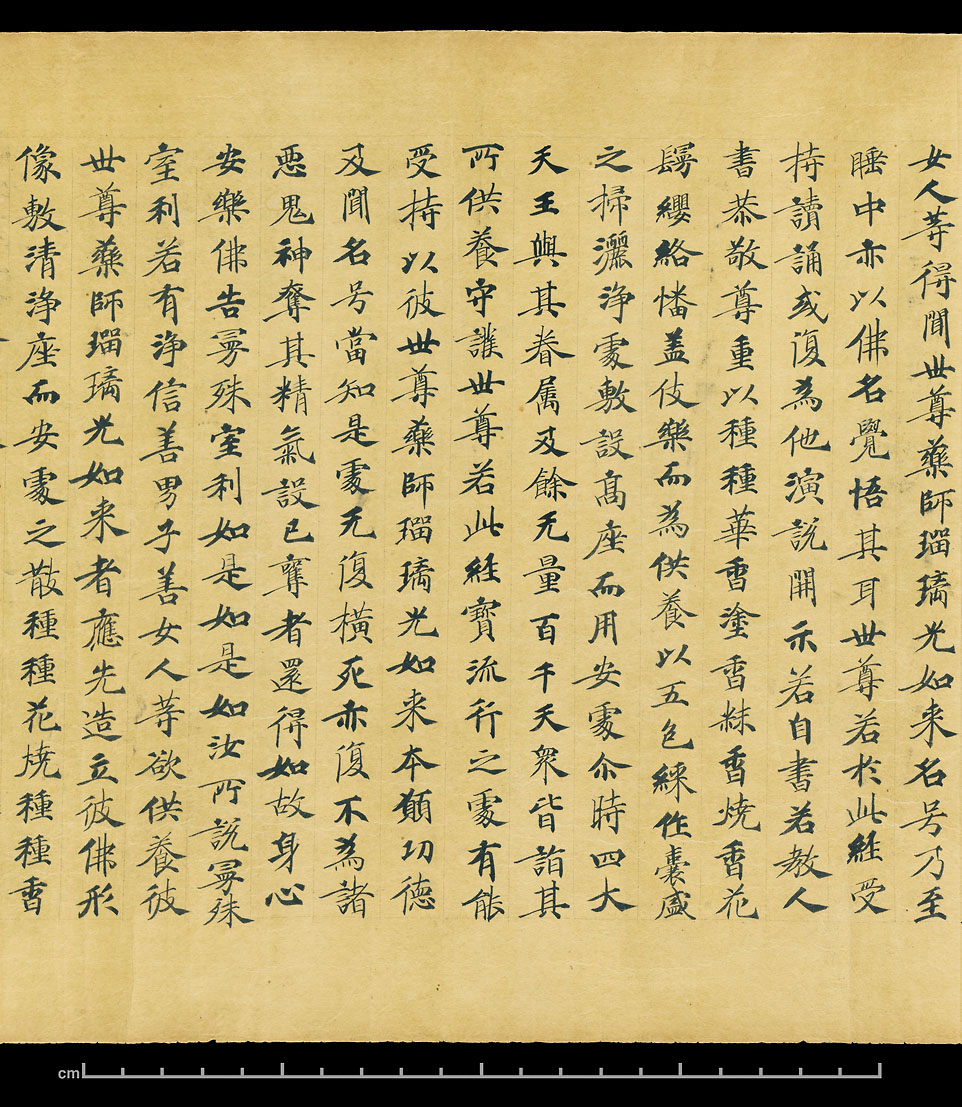 女人等得聞世尊藥師瑠璃光如来名号乃至
睡中亦以佛名覺悟其耳世尊若於此經受
持讀誦或復為他演說開示若自書若教人
書恭敬尊重以種種華香塗香粖香燒香花
鬘纓絡幡盖伎樂而為供養以五色綵作囊盛
之掃灑淨處敷設髙座而用安處尒時四大
天王與其眷属及餘无量百千天衆皆詣其
所供養守護世尊若此經寶流行之處有能
受持以彼世尊藥師瑠璃光如来本願功德
及聞名号當知是處无復橫死亦復不為諸
惡鬼神奪其精氣設已奪者還得如故身心
安樂佛告㝹殊室利如是如是如汝所說㝹殊
室利若有淨信善男子善女人等欲供養彼
世尊藥師瑠璃光如来者應先造立彼佛形
像敷清淨座而安處之散種種花燒種種香
cm